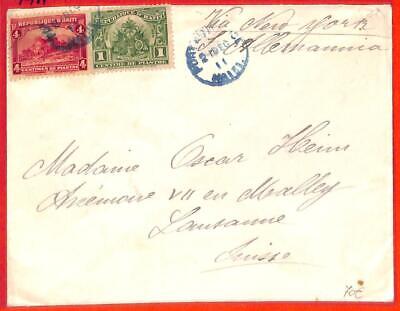 REPUBLIQUE D'HAITI
4 4
CENTIMES DE PIASTRE
REPUBLIQUE D'HAITI
1 1
CENTIME DE PIASTRE
PORT
DEC
11
HAITI
Via New York
Allemannia
Madame Oscar Heim
Arcémoire VII en Malley
Lausanne
Suisse
70€